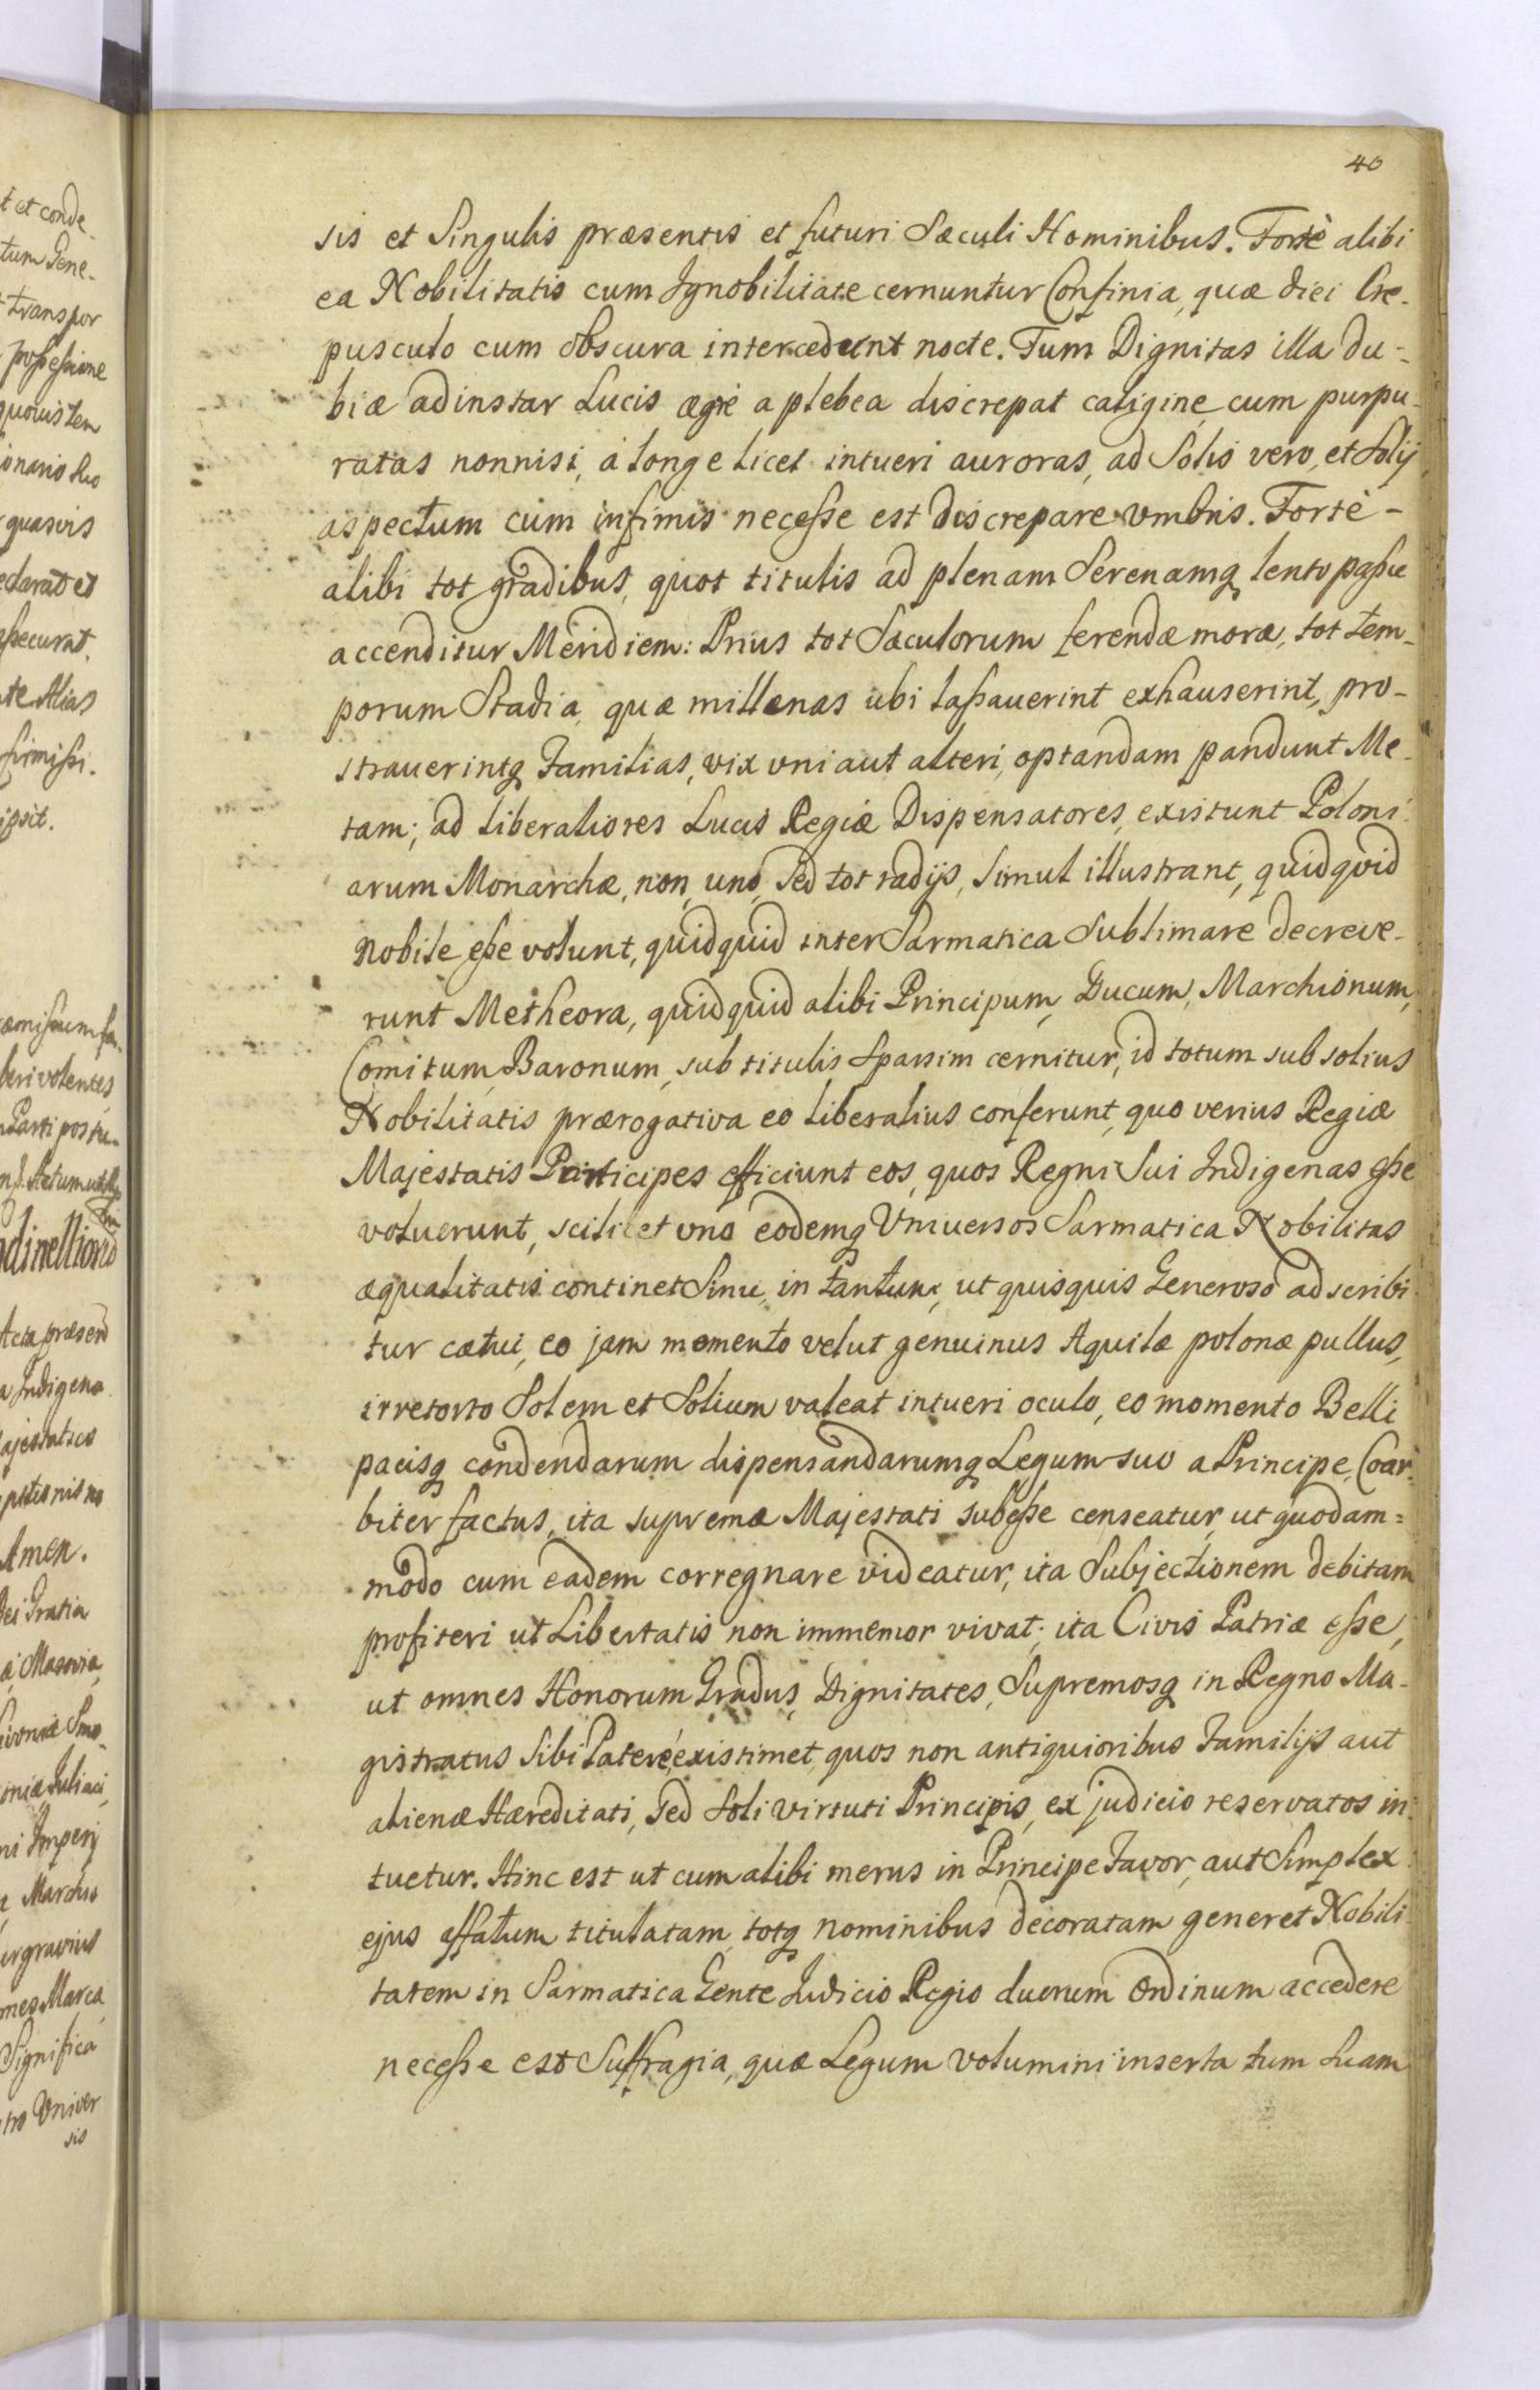 40
sis et Singulis præsentis et futuri Sæculi Hominibus. Fortè alibi
ea Nobilitatis cum Ignobilitate cernuntur Confinia, quæ diei Cre-
pusculo cum obscura intercedunt nocte. Tum Dignitas illa du-
biæ adinstar Lucis ægrè a plebea discrepat caligine, cum purpu-
ratas nonnisi, à longe licet intueri auroras, ad Solis vero, et Solij
aspectum cùm infimis necesse est discrepare vmbris. Fortè-
alibi tot gradibus, quot titulis ad plenam Serenamq lento passu
accenditur Meridiem: Prius tot Sæculorum ferendæ moræ, tot tem-
porum Stadia, quæ millenas ubi lassauerint exhauserint, pro-
strauerintq Familias, vix vni aut alteri, optandam pandunt Me-
tam; ad liberaliores Lucis Regiæ Dispensatores, existunt Poloni-
arum Monarchæ, non, uno, sed tot radijs, simul illustrant, quidquid
nobile esse volunt, quidquid inter Sarmatica Sublimare decreve-
runt Metheora, quidquid alibi Principum, Ducum, Marchionum,
Comitum, Baronum, sub titulis Sparsim cernitur, id totum sub solius
Nobilitatis prærogativa eo liberalius conferunt, quo verius Regiæ
Majestatis Participes efficiunt eos, quos Regni Sui Indigenas esse
voluerunt, scilicet vno eodemq Vniuersos Sarmatica Nobilitas
æqualitatis continet Sinu, in tantum, ut quisquis Generoso adscribi-
tur cætui, eo jam momento velut genuinus Aquilæ polonæ pullus,
irretorto Solem et Solium valeat intueri oculo, eo momento Belli
pacisq condendarum dispensandarumq Legum suo a Principe, Coar-
biter factus, ita supremæ Majestati subesse censeatur, ut quodam=
modo cum eadem corregnare videatur, ita Subjectionem debitam
profiteri ut Libertatis non immemor vivat; ita Civis Patriæ esse,
ut omnes Honorum Gradus, Dignitates, Supremosq in Regno Ma-
gistratus Sibi Patere, existimet, quos non antiquioribus Familijs aut
alienæ Hæreditati, Sed Soli Virtuti Principis, ex judicio reservatos in-
tuetur. Hinc est ut cum alibi merus in Principe Favor, aut Simplex
ejus effatum titulatam, totq nominibus decoratam generet Nobili-
tatem in Sarmatica Gente Iudicio Regio duorum Ordinum accedere
necesse est Suffragia, quæ Legum Volumini inserta tum Suam